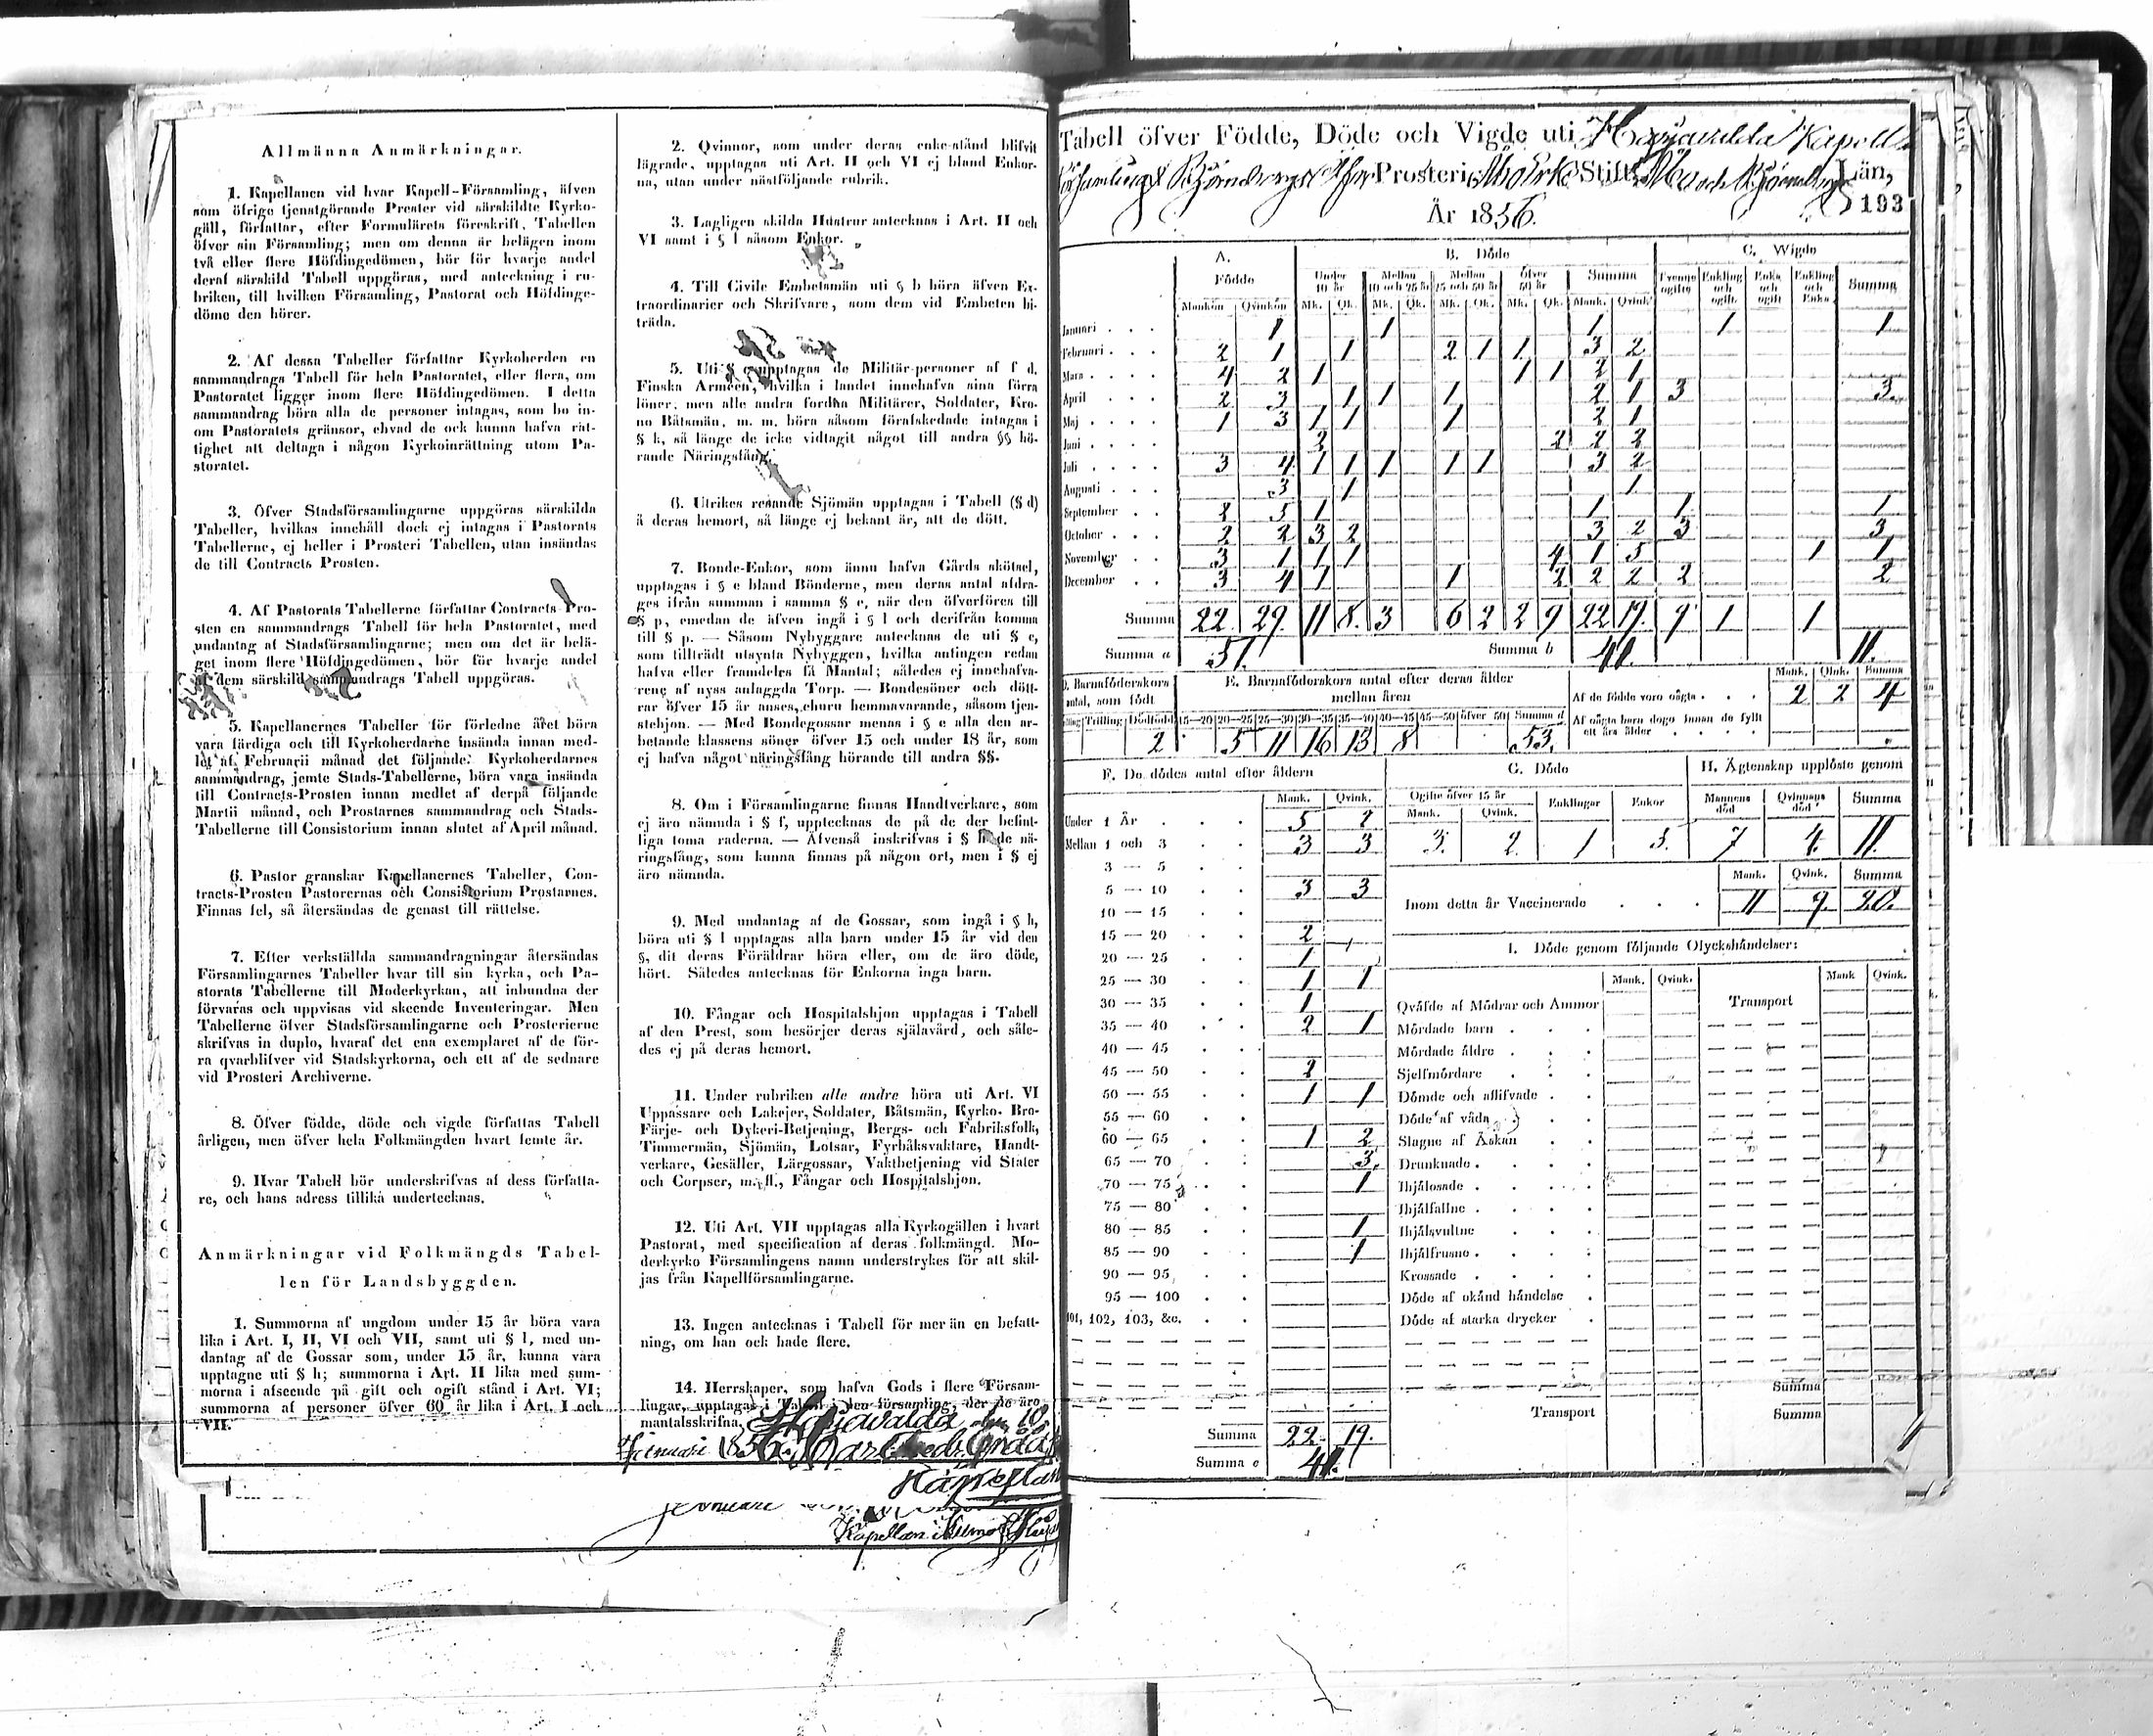 Allmänna Anmärkningar.
1. Kapellanen vid hvar Kapell-Församling, äfven
som öfrige tjenstgörande Prester vid särskildte Kyrko-
gäll, författar, efter Formulärets föreskrift, Tabellen
öfver sin Församling; men om denna är belägen inom
två eller flere Höfdingedömen, bör för hvarje andel
deraf särskild Tabell uppgöras, med anteckning i ru-
briken, till hvilken Församling, Pastorat och Höfdinge-
döme den hörer.
2. Af dessa Tabeller författar Kyrkoherden en
sammandrags Tabell för hela Pastoratet, eller flera, om
Pastoratet ligger inom flere Höfdingedömen. I detta
sammandrag böra alla de personer intagas, som bo in-
om Pastoratets gränsor, ehvad de ock kunna hafva rät-
tighet att deltaga i någon Kyrkoinrättning utom Pa-
storatet.
3. Öfver Stadsförsamlingarne uppgöras särskilda
Tabeller, hvilkas innehåll dock ej intagas i Pastorats
Tabellerne, ej heller i Prosteri Tabellen, utan insändas
de till Contracts Prosten.
4. Af Pastorats Tabellerne författar Contracts Pro-
sten en sammandrags Tabell för hela Pastoratet, med
undantag af Stadsförsamlingarne; men om det är belä-
get inom flere Höfdingedömen, bör för hvarje andel
af dem särskild sammandrags Tabell uppgöras.
5. Kapellanernes Tabeller för förledne året böra
vara färdiga och till Kyrkoherdarne insända innan med-
let af Februarii månad det följande. Kyrkoherdarnes
sammandrag, jemte Stads-Tabellerne, böra vara insända
till Contracts-Prosten innan medlet af derpå följande
Martii månad, och Prostarnes sammandrag och Stads-
Tabellerne till Consistorium innan slutet af April månad.
6. Pastor granskar Kapellanernes Tabeller, Con-
tracts-Prosten Pastorernas och Consistorium Prostarnes.
Finnas fel, så återsändas de genast till rättelse.
7. Efter verkställda sammandragningar återsändas
Församlingarnes Tabeller hvar till sin kyrka, och Pa-
storats Tabellerne till Moderkyrkan, att inbundna der
förvaras och uppvisas vid skeende Inventeringar. Men
Tabellerne öfver Stadsförsamlingarne och Prosterierne
skrifvas in duplo, hvaraf det ena exemplaret af de för-
ra qvarblifver vid Stadskyrkorna, och ett af de sednare
vid Prosteri Archiverne.
8. Öfver födde, döde och vigde författas Tabell
årligen, men öfver hela Folkmängden hvart femte år.
9. Hvar Tabell bör underskrifvas af dess författa-
re, och hans adress tillika undertecknas.
Anmärkningar vid Folkmängds Tabel-
len för Landsbyggden.
1. Summorna af ungdom under 15 år böra vara
lika i Art. I, II, VI och VII, samt uti § l, med un-
dantag af de Gossar som, under 15 år, kunna vara
upptagne uti § h; summorna i Art. II lika med sum-
morna i afseende på gift och ogift stånd i Art. VI;
summorna af personer öfver 60 år lika i Art. I och
VII.
2. Qvinnor, som under deras enke-stånd blifvit
lägrade, upptagas uti Art. II och VI ej bland Enkor-
na, utan under nästföljande rubrik.
3. Lagligen skilda Hustrur antecknas i Art. II och
VI samt i § l såsom Enkor.
4. Till Civile Embetsmän uti § b höra äfven Ex-
traordinarier och Skrifvare, som dem vid Embeten bi-
träda.
5. Uti § c upptagas de Militär-personer af f d.
Finska Armeen, hvilka i landet innehafva sina förra
löner; men alle andra fordna Militärer, Soldater, Kro-
no Båtsmän, m. m. böra såsom förafskedade intagas i
§ k, så länge de icke vidtagit något till andra §§ hö-
rande Näringsfång.
6. Utrikes resande Sjömän upptagas i Tabell (§ d)
å deras hemort, så länge ej bekant är, att de dött.
7. Bonde-Enkor, som ännu hafva Gårds skötsel,
upptagas i § e bland Bönderne, men deras antal afdra-
ges ifrån summan i samma § e, när den öfverföres till
§ p, emedan de äfven ingå i § l och derifrån komma
till § p. — Såsom Nybyggare antecknas de uti § e,
som tillträdt utsynta Nybyggen, hvilka antingen redan
hafva eller framdeles få Mantal; således ej innehafva-
rene af nyss anlaggda Torp. — Bondesöner och dött-
rar öfver 15 år anses, churu hemmavarande, såsom tjen-
stehjon. — Med Bondegossar menas i § e alla den ar-
betande klassens söner öfver 15 och under 18 år, som
ej hafva något näringsfång hörande till andra §§.
8. Om i Församlingarne finnas Handtverkare, som
ej äro nämnda i § f, upptecknas de på de der befint-
liga toma raderna. — Äfvenså inskrifvas i § h de nä-
ringsfång, som kunna finnas på någon ort, men i § ej
äro nämnda.
9. Med undantag af de Gossar, som ingå i § h,
böra uti § l upptagas alla barn under 15 år vid den
§, dit deras Föräldrar höra eller, om de äro döde,
hört. Således antecknas för Enkorna inga barn.
10. Fångar och Hospitalshjon upptagas i Tabell
af den Prest, som besörjer deras själavård, och såle-
des ej på deras hemort.
11. Under rubriken alle andre höra uti Art. VI
Uppassare och Lakejer, Soldater, Båtsmän, Kyrko- Bro-
Färje- och Dykeri-Betjening, Bergs- och Fabriksfolk,
Timmermän, Sjömän, Lotsar, Fyrbåksvaktare, Handt-
verkare, Gesäller, Lärgossar, Vaktbetjening vid Stater
och Corpser, m. fl., Fångar och Hospitalshjon.
12. Uti Art. VII upptagas alla Kyrkogällen i hvart
Pastorat, med specification af deras folkmängd. Mo-
derkyrko Församlingens namn understrykes för att skil-
jas från Kapellförsamlingarne.
13. Ingen antecknas i Tabell för mer än en befatt-
ning, om han ock hade flere.
14. Herrskaper, som hafva Gods i flere Försam-
lingar, upptagas i Tabell i den församling, der de äro
mantalsskrifna.
Harjavalda den 10
Januari 1856
Kapellan
Kapellan i
Tabell öfver Födde, Döde och Vigde uti Harjavalda Kapell
Församling Björneborgs Prosteri, Åbo Erke Stift, Åbo och Björneborgs Län,
År 1856. 193
A. B. Döde C. Wigde
Födde Under 10 år Mellan 10 och 25 år Mellan 25 och 50 år Öfver 50 år Summa Tvenne ogifte Enkling och ogift. Enka och ogift Enkling och Enka Summa
Mankön Qvinkön Mk. Qk. Mk. Qk. Mk. Qk. Mk. Qk. Mank. Qvink.
Januari 1 1 1 1 1
Februari 2 1 1 2 1 1 3 2
Mars 4 2 1 1 1 2 1
April 2 3 1 1 1 2 1 3 3
Maj 1 3 1 1 1 2 1
Juni 2 2 2 2
Juli 3 4 1 1 1 1 1 3 2
Augusti 3 1 1
September 2 5 1 1 1 1
October 2 2 3 2 3 2 3 3
November 3 1 1 1 4 1 5 1 1
December 3 4 1 1 2 2 2 2 2
Summa 22 29 11 8 3 6 2 2 9 22 19 9 1 1
Summa a 51. Summa b 41. 11.
D. Barnaföderskors antal, som födt E. Barnaföderskors antal efter deras ålder mellan åren Mank. Qvink. Summa
Af de födde voro oägta 2 2 4
Trilling Dödfödd 15—20 20—25 25—30 30—35 35—40 40—45 45—50 öfver 50 Summa d Af oägta barn dogo innan de fyllt ett års ålder
2 5 11 16 13 8 53.
F. De dödes antal efter åldern G. Döde H. Ägtenskap upplöste genom
Mank. Qvink. Ogifte öfver 15 år Enklingar Enkor Mannens död Qvinnans död Summa
Mank. Qvink.
Under 1 År 5 2
Mellan 1 och 3 3 3 3. 2 1 5. 7 4 11.
3 — 5
5 — 10 3 3 Mank. Qvink. Summa
10 — 15 Inom detta år Vaccinerade 11 9 20.
15 — 20 2
20 — 25 1 I. Döde genom följande Olyckshändelser:
25 — 30 1 1 Mank. Qvink. Mank Qvink.
30 — 35 1 Qväfde af Mödrar och Ammor Transport
35 — 40 2 1 Mördade barn
40 — 45 Mördade äldre
45 — 50 2 Sjelfmördare
50 — 55 1 1 Dömde och aflifvade
55 — 60 Döde af våda
60 — 65 1 2 Slagne af Åskan
65 — 70 3. Drunknade
70 — 75 1 Ihjälosade
75 — 80 Ihjälfallne
80 — 85 1 Ihjälsvultne
85 — 90 1 Ihjälfrusne
90 — 95 Krossade
95 — 100 Döde af okänd händelse
101, 102, 103, &c. Döde af starka drycker
Summa
Transport Summa
Summa 22. 19.
Summa e 41.